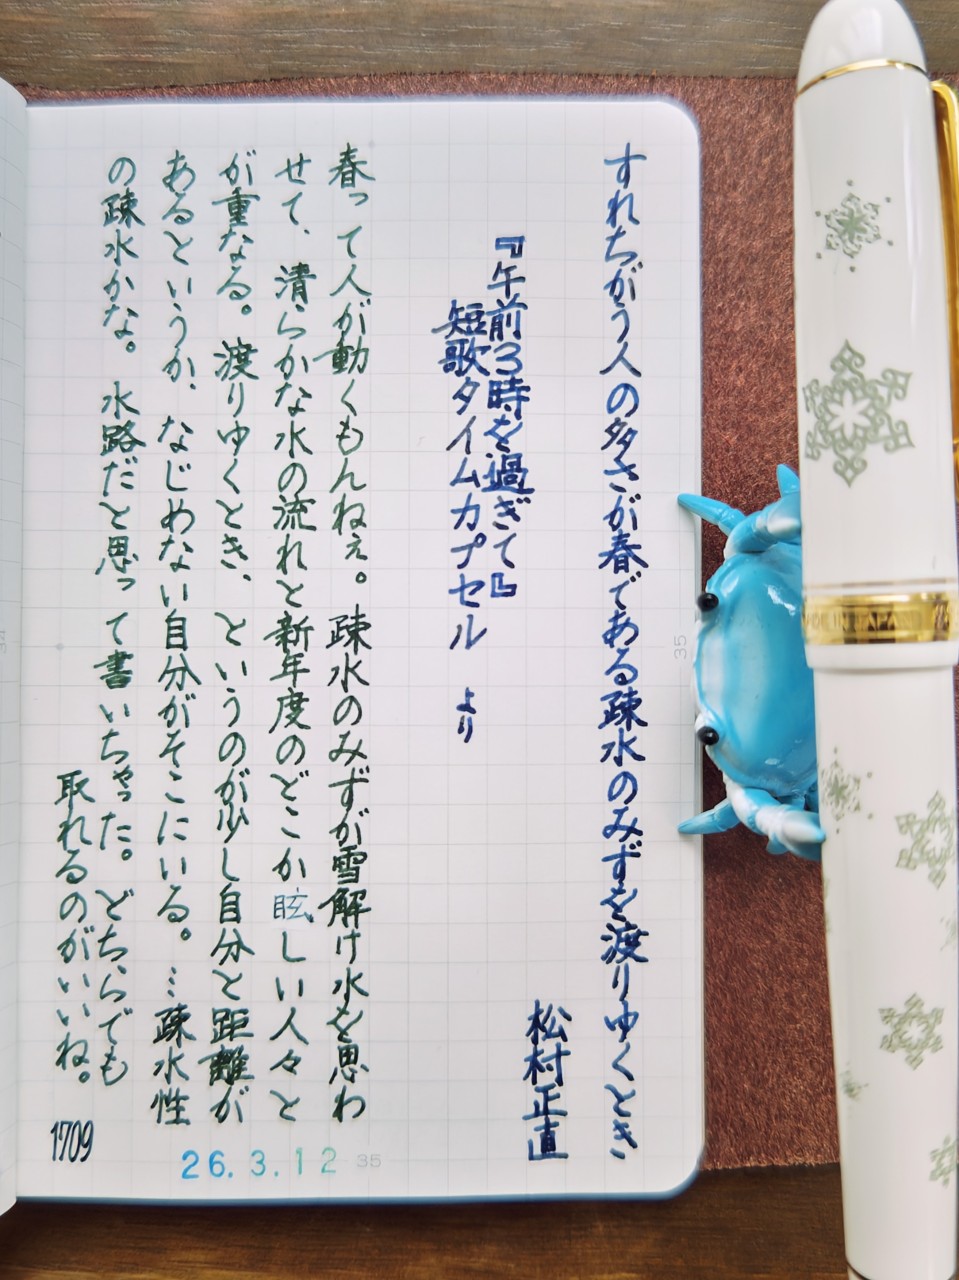 すれちがう人の多さが春である疎水のみずを渡りゆくとき
松村正直
『午前3時を過ぎて』
短歌タイムカプセル より
春って人が動くもんねぇ。疎水のみずが雪解け水を思わ
せて、清らかな水の流れと新年度のどこか眩しい人々と
が重なる。渡りゆくとき、というのが少し自分と距離が
あるというか、なじめない自分がそこにいる。…疎水性
の疎水かな。水路だと思って書いちゃった。どちらでも
取れるのがいいね。
1709
26.3.12
35
35
MADE IN JAPAN